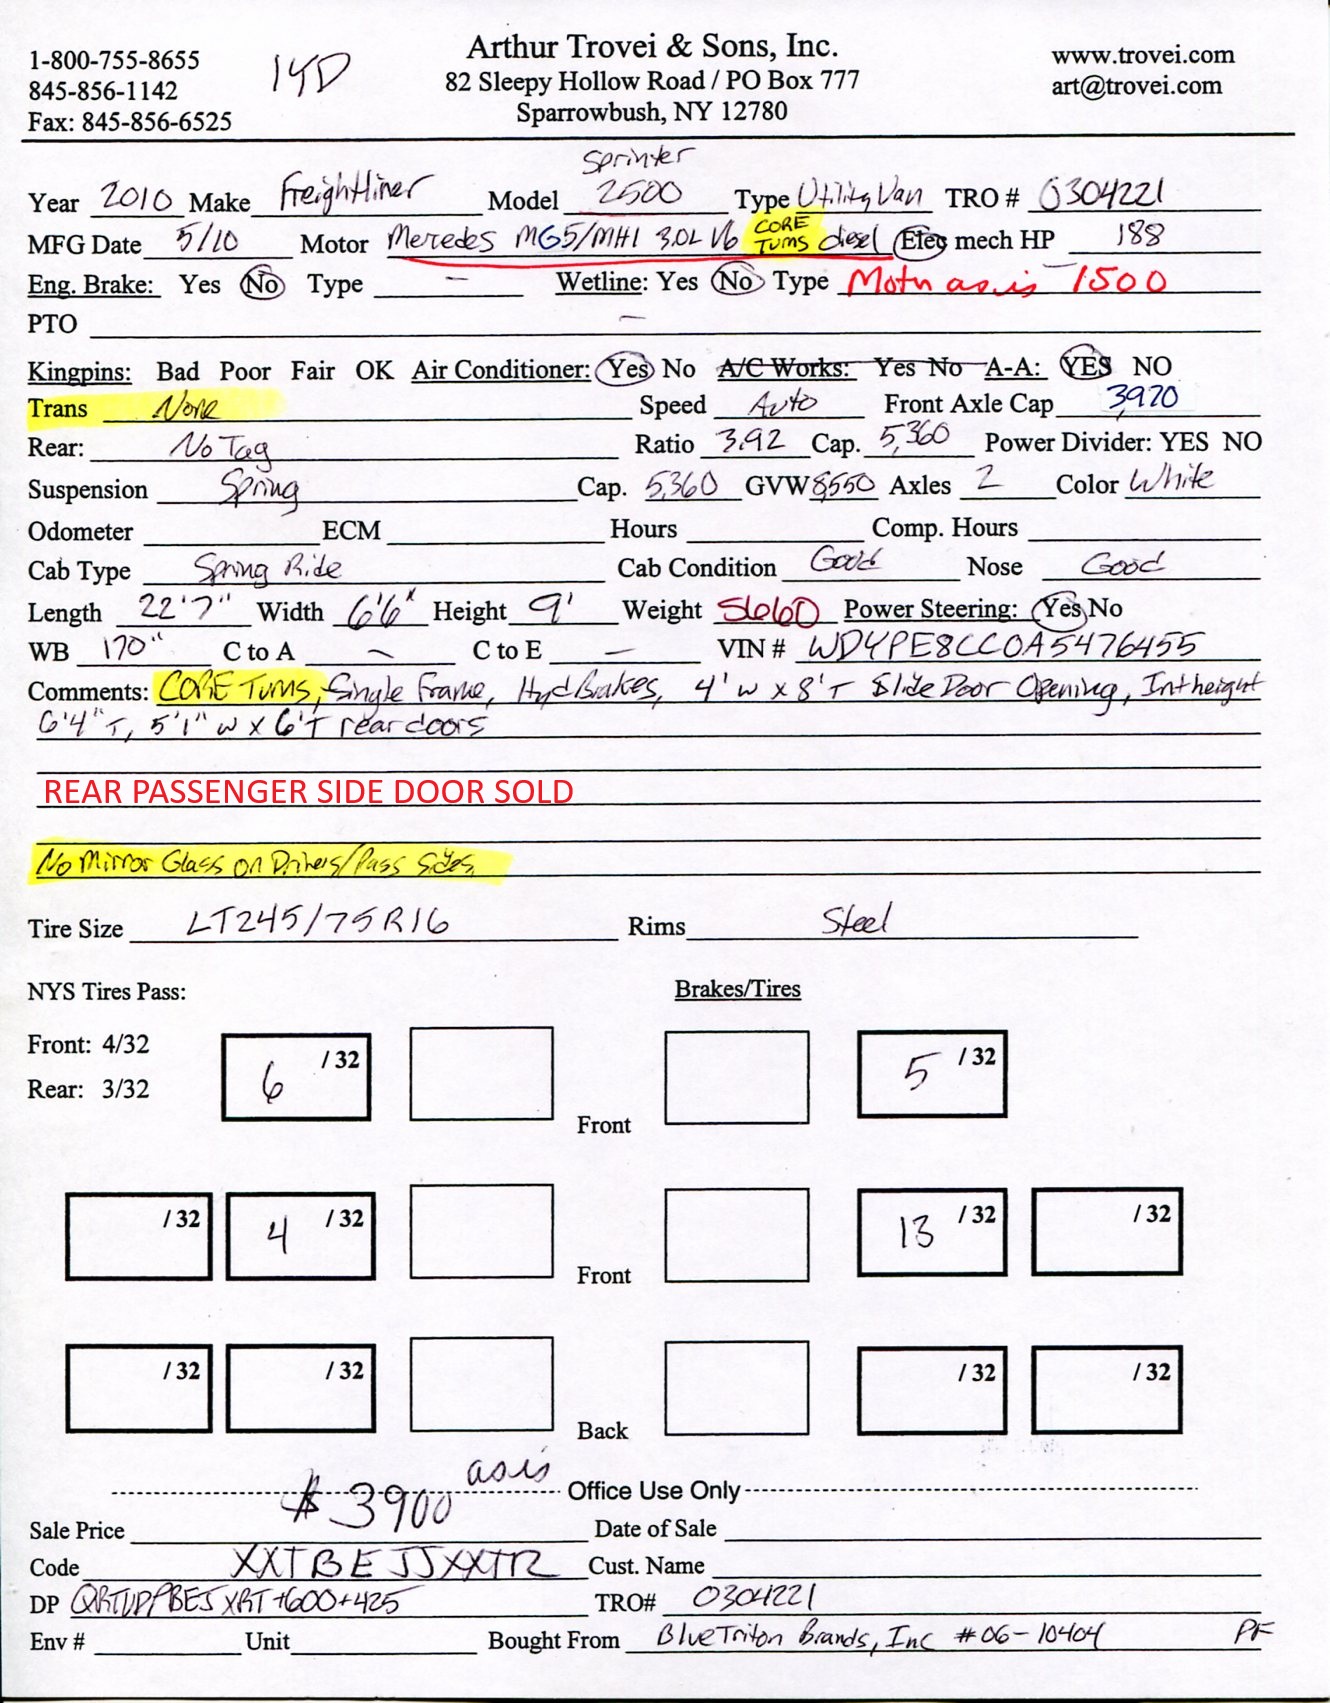 1-800-755-8655
845-856-1142
Fax: 845-856-6525
IYD
Arthur Trovei & Sons, Inc.
82 Sleepy Hollow Road / PO Box 777
Sparrowbush, NY 12780
www.trovei.com
art@trovei.com
Sprinter
Year 2010 Make Freightliner Model 2500 Type Utility Van TRO # 0304221
MFG Date 5/10 Motor Meredes MG5/MH1 3.0L V6 CORE TURNS diesel Elec mech HP 188
Eng. Brake: Yes No Type – Wetline: Yes No Type Motor as is – 1500
PTO –
Kingpins: Bad Poor Fair OK Air Conditioner: Yes No A/C Works: Yes No A-A: YES NO
Trans None Speed Auto Front Axle Cap 3,970
Rear: No Tag Ratio 3.92 Cap. 5,360 Power Divider: YES NO
Suspension Spring Cap. 5,360 GVW 8,550 Axles 2 Color White
Odometer ECM Hours Comp. Hours
Cab Type Spring Ride Cab Condition Good Nose Good
Length 22'7" Width 6'6" Height 9' Weight 5660 Power Steering: Yes No
WB 170" C to A – C to E – VIN # WDYPE8CC0A5476455
Comments: CORE Turns, Single Frame, Hyd Brakes, 4' W x 8' T Slide Door Opening, Int height
6'4" T, 5'1" W x 6' T rear doors
REAR PASSENGER SIDE DOOR SOLD
No Mirror Glass on Drivers/Pass Sides
Tire Size LT245/75R16 Rims Steel
NYS Tires Pass: Brakes/Tires
Front: 4/32
Rear: 3/32
6 /32 5 /32
Front
/32 4 /32 13 /32 /32
Front
/32 /32 /32 /32
Back
Office Use Only
Sale Price $3900 as is Date of Sale
Code XXTBEJJXXTR Cust. Name
DP XRT+600+425 TRO# 0304221
Env # Unit Bought From BlueTriton Brands, Inc #06-10404 PF